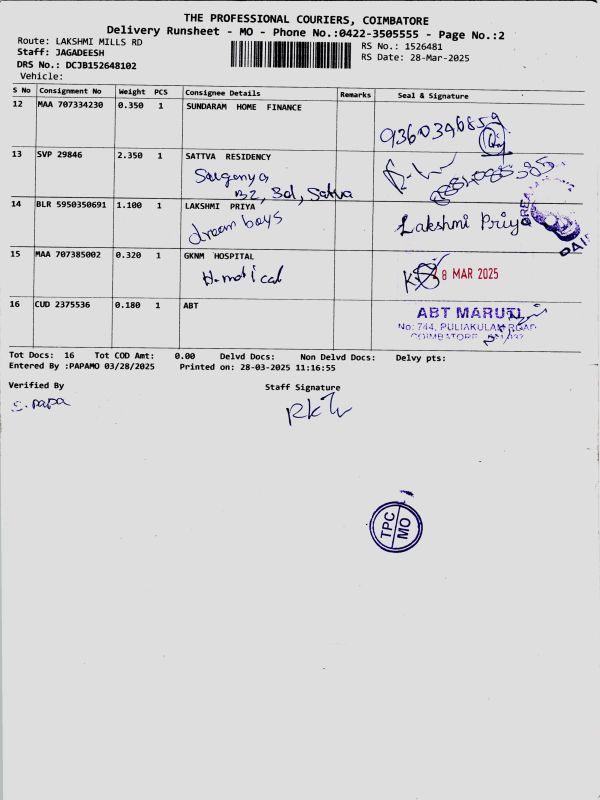 THE PROFESSIONAL COURIERS, COIMBATORE
Delivery Runsheet - MO - Phone No.:0422-3505555 - Page No.:2
Route: LAKSHMI MILLS RD
Staff: JAGADEESH
DRS No.: DCJB152648102
Vehicle:
RS No.: 1526481
RS Date: 28-Mar-2025
S No Consignment No Weight PCS Consignee Details Remarks Seal & Signature
12 MAA 707334230 0.350 1 SUNDARAM HOME FINANCE
13 SVP 29846 2.350 1 SATTVA RESIDENCY
14 BLR 5950350691 1.100 1 LAKSHMI PRIYA
dream boys
Lakshmi Priya
15 MAA 707385002 0.320 1 GKNM HOSPITAL
8 MAR 2025
16 CUD 2375536 0.180 1 ABT
ABT MARUTI
No: 744, PULIAKULAM ROAD
COIMBATORE
Tot Docs: 16 Tot COD Amt: 0.00 Delvd Docs: Non Delvd Docs: Delvy pts:
Entered By :PAPAMO 03/28/2025 Printed on: 28-03-2025 11:16:55
Verified By Staff Signature
S. Papa
TPC
MO